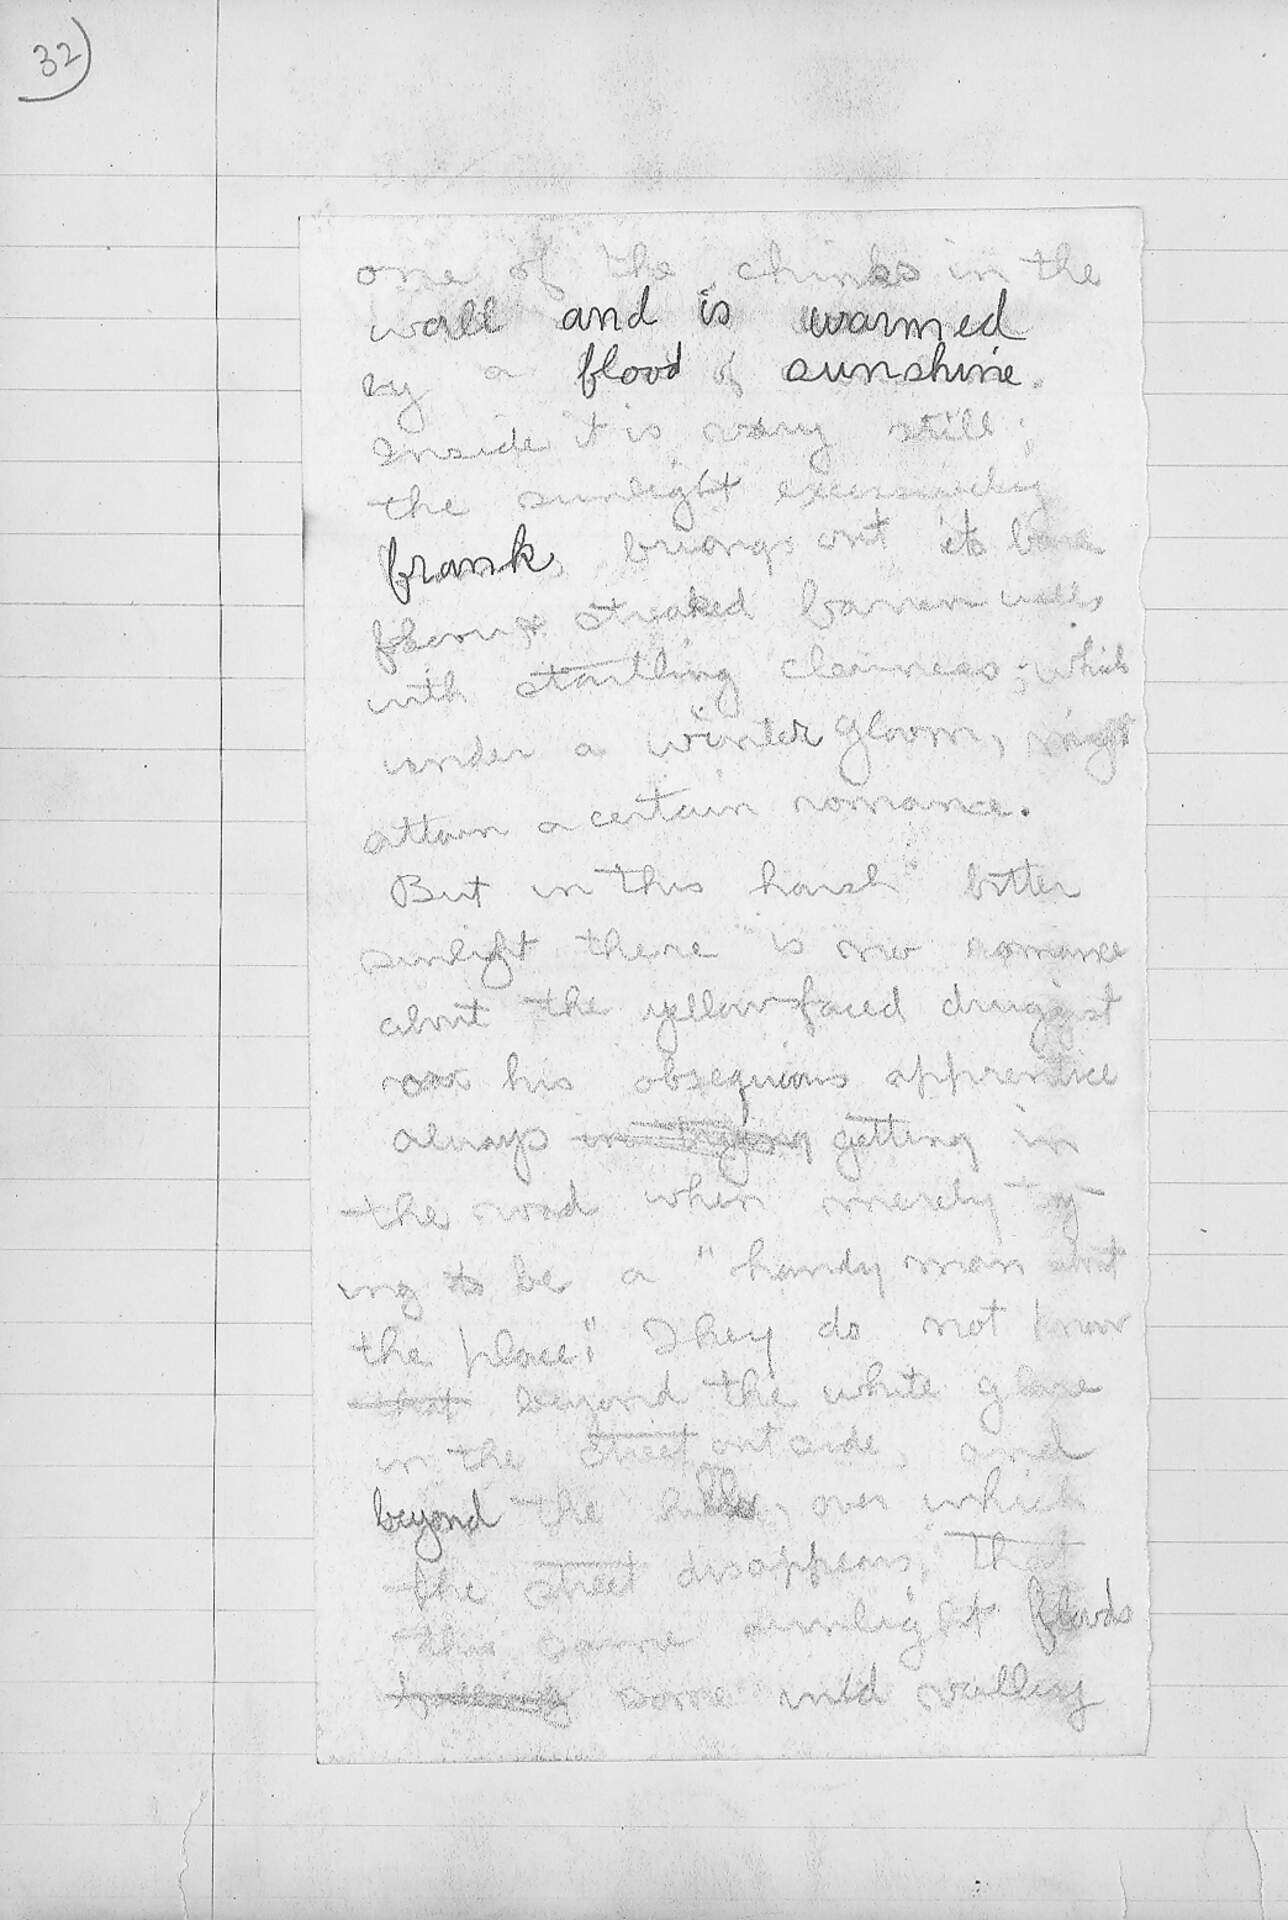 32)
one of the chinks in the
wall and is warmed
by a flood of sunshine.
Inside it is very still;
the sunlight excessively
frank, brings out its bare
streaked barren walls
with startling clearness; which
under a winter gloom, might
attain a certain romance.
But in this harsh bitter
sunlight there is no romance
about the yellow faced druggist
his obsequious apprentice
always in trying getting in
the road when merely try-
ing to be a "handy man about
the place". They do not know
that beyond the white glare
in the street outside, and
beyond the hills, over which
the street disappears, that
this same sunlight floods
some wild valley